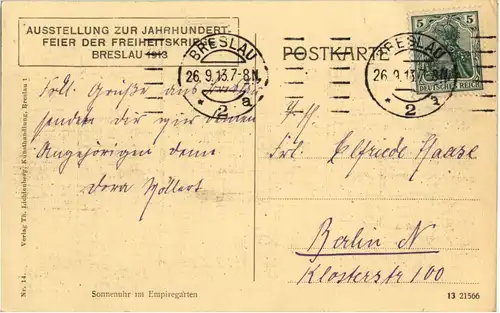 AUSSTELLUNG ZUR JAHRHUNDERT-
FEIER DER FREIHEITSKRIEGE
BRESLAU 1913
BRESLAU
26.9.13.7-8N.
* 2 a
POSTKARTE
BRESLAU
26.9.13.7-8N.
* 2 a
5 5
DEUTSCHES REICH
Frdl. Grüße aus Breslau
senden dir wie deinen
Angehörigen deine
Dora
Frl. Elfriede Haase
Berlin N
Klosterstr 100
Verlag Th. Lichtenberg, Kunsthandlung, Breslau 1
Nr. 14.
Sonnenuhr im Empiregarten
13 21566